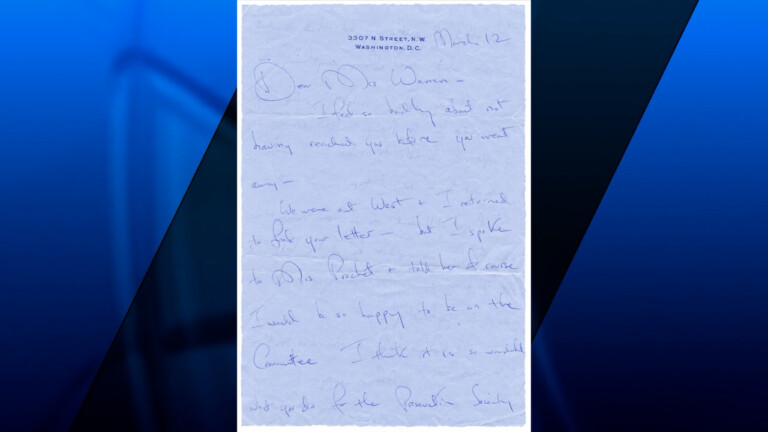 3307 N STREET, N.W.
WASHINGTON, D.C.
March 12
Dear Mrs Warren –
I feel so badly about not
having reached you before you went
away –
We were out West & I returned
to find your letter – but I spoke
to Mrs & told her of course
I would be so happy to be on the
Committee I think it is so wonderful
what you do for the Preservation Society